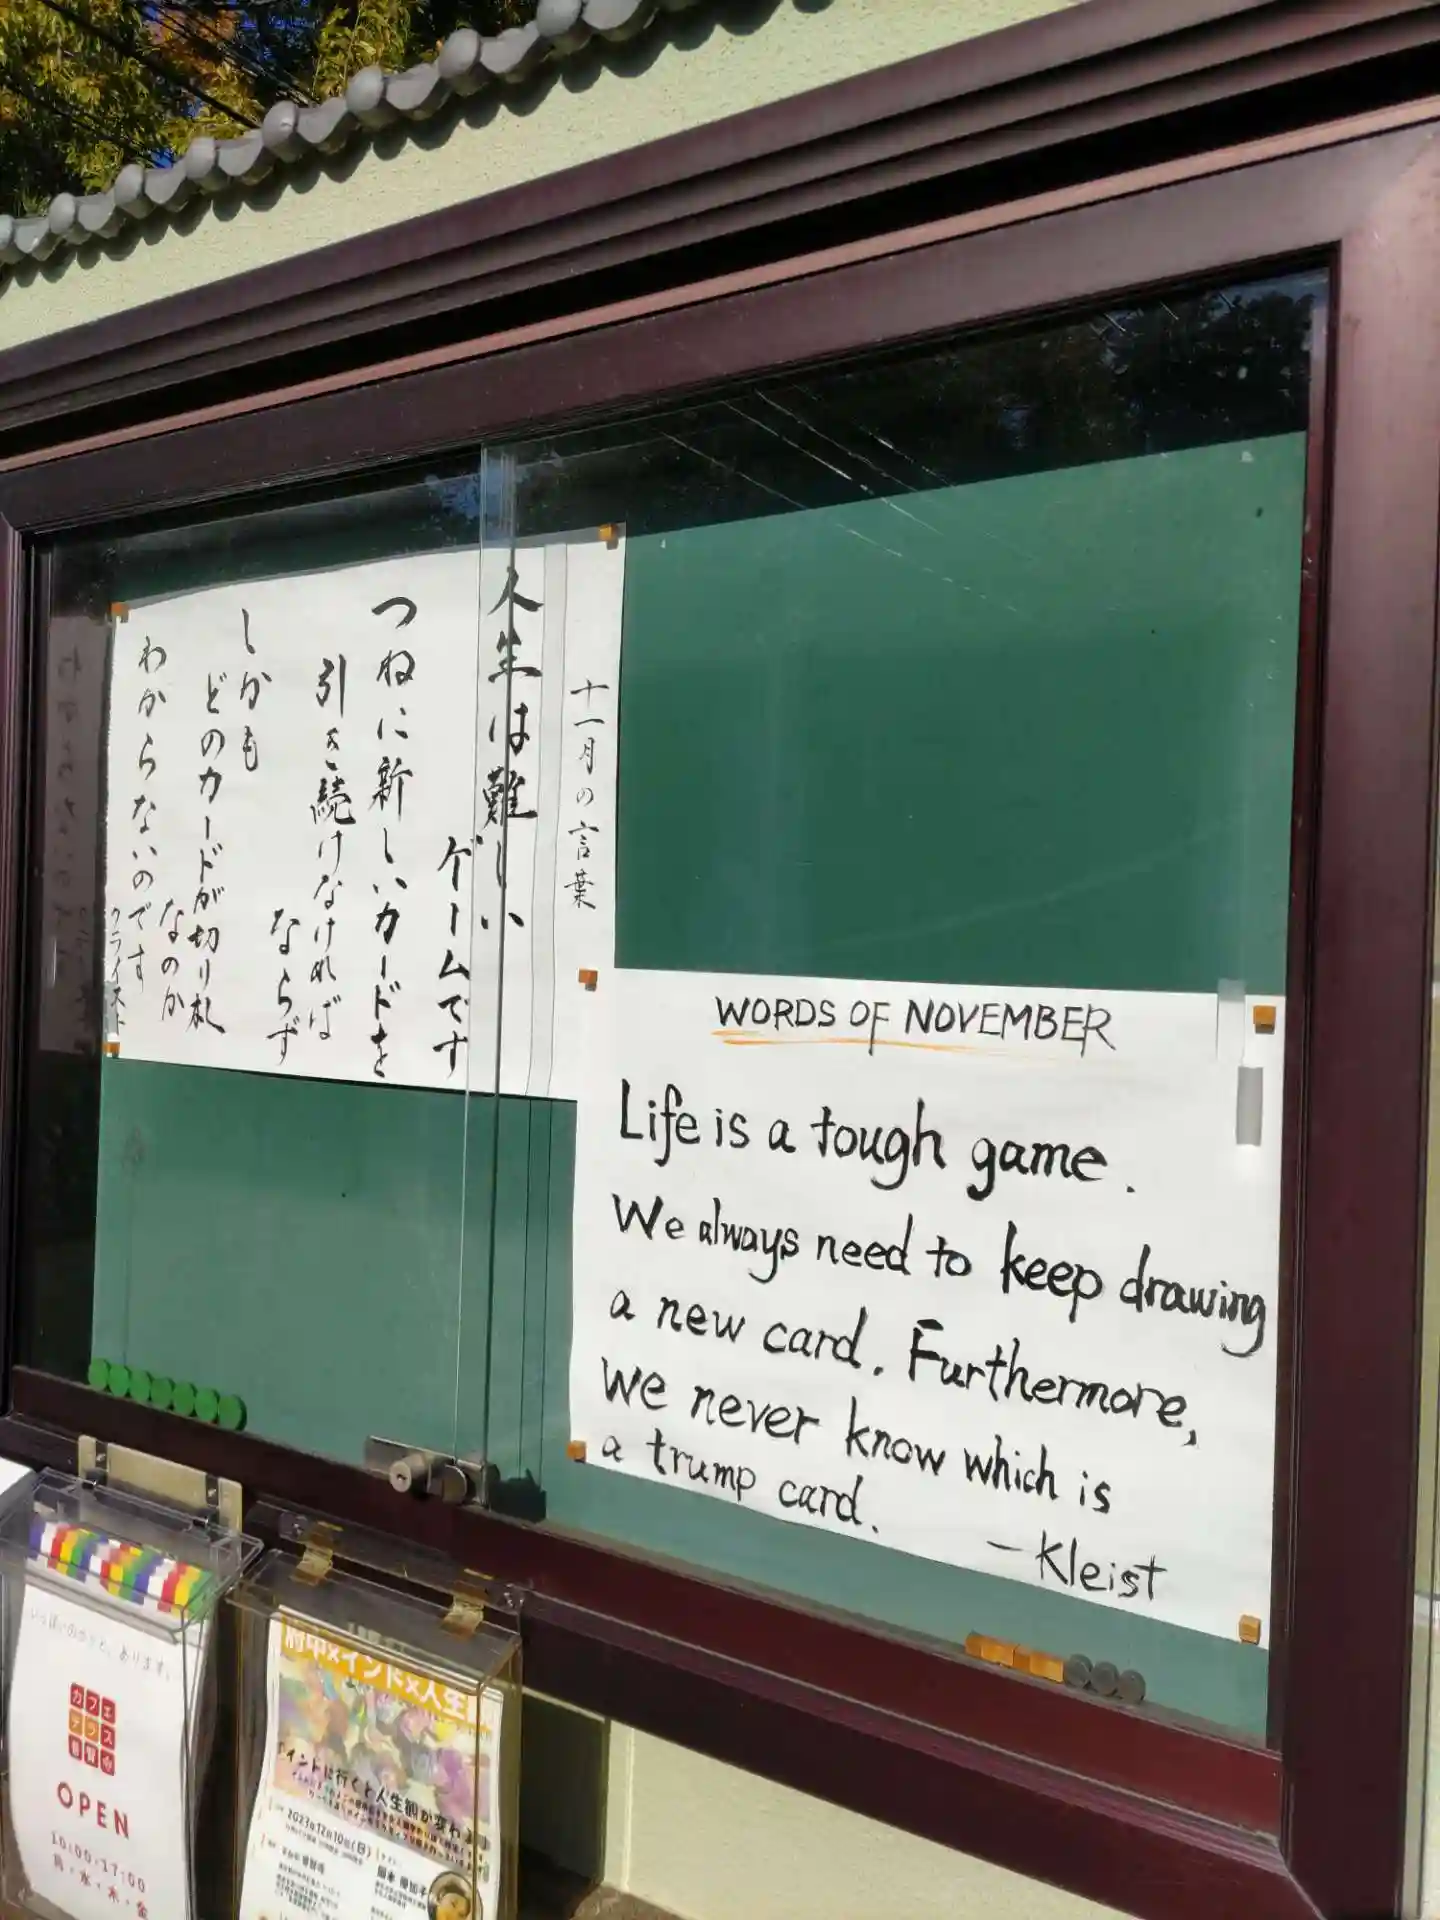 十一月の言葉
人生は難しい
ゲームです
つねに新しいカードを
引き続けなければ
ならず
しかも
どのカードが切り札
なのか
わからないのです
クライスト
WORDS OF NOVEMBER
Life is a tough game.
We always need to keep drawing
a new card. Furthermore,
we never know which is
a trump card.
—Kleist
カフェ
テラス
OPEN
10:00-17:00
月・水・木・金
府中×インド×人生
インドに行くと人生観が変わる
2023年12月10日(日)